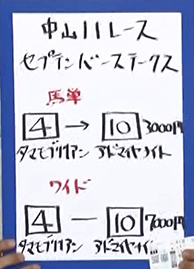 中山11レース
セプテンバーステークス
馬単
4 → 10 3000円
タマモブリリアン アドマイヤナイト
ワイド
4 ― 10 7000円
タマモブリリアン アドマイヤナイト